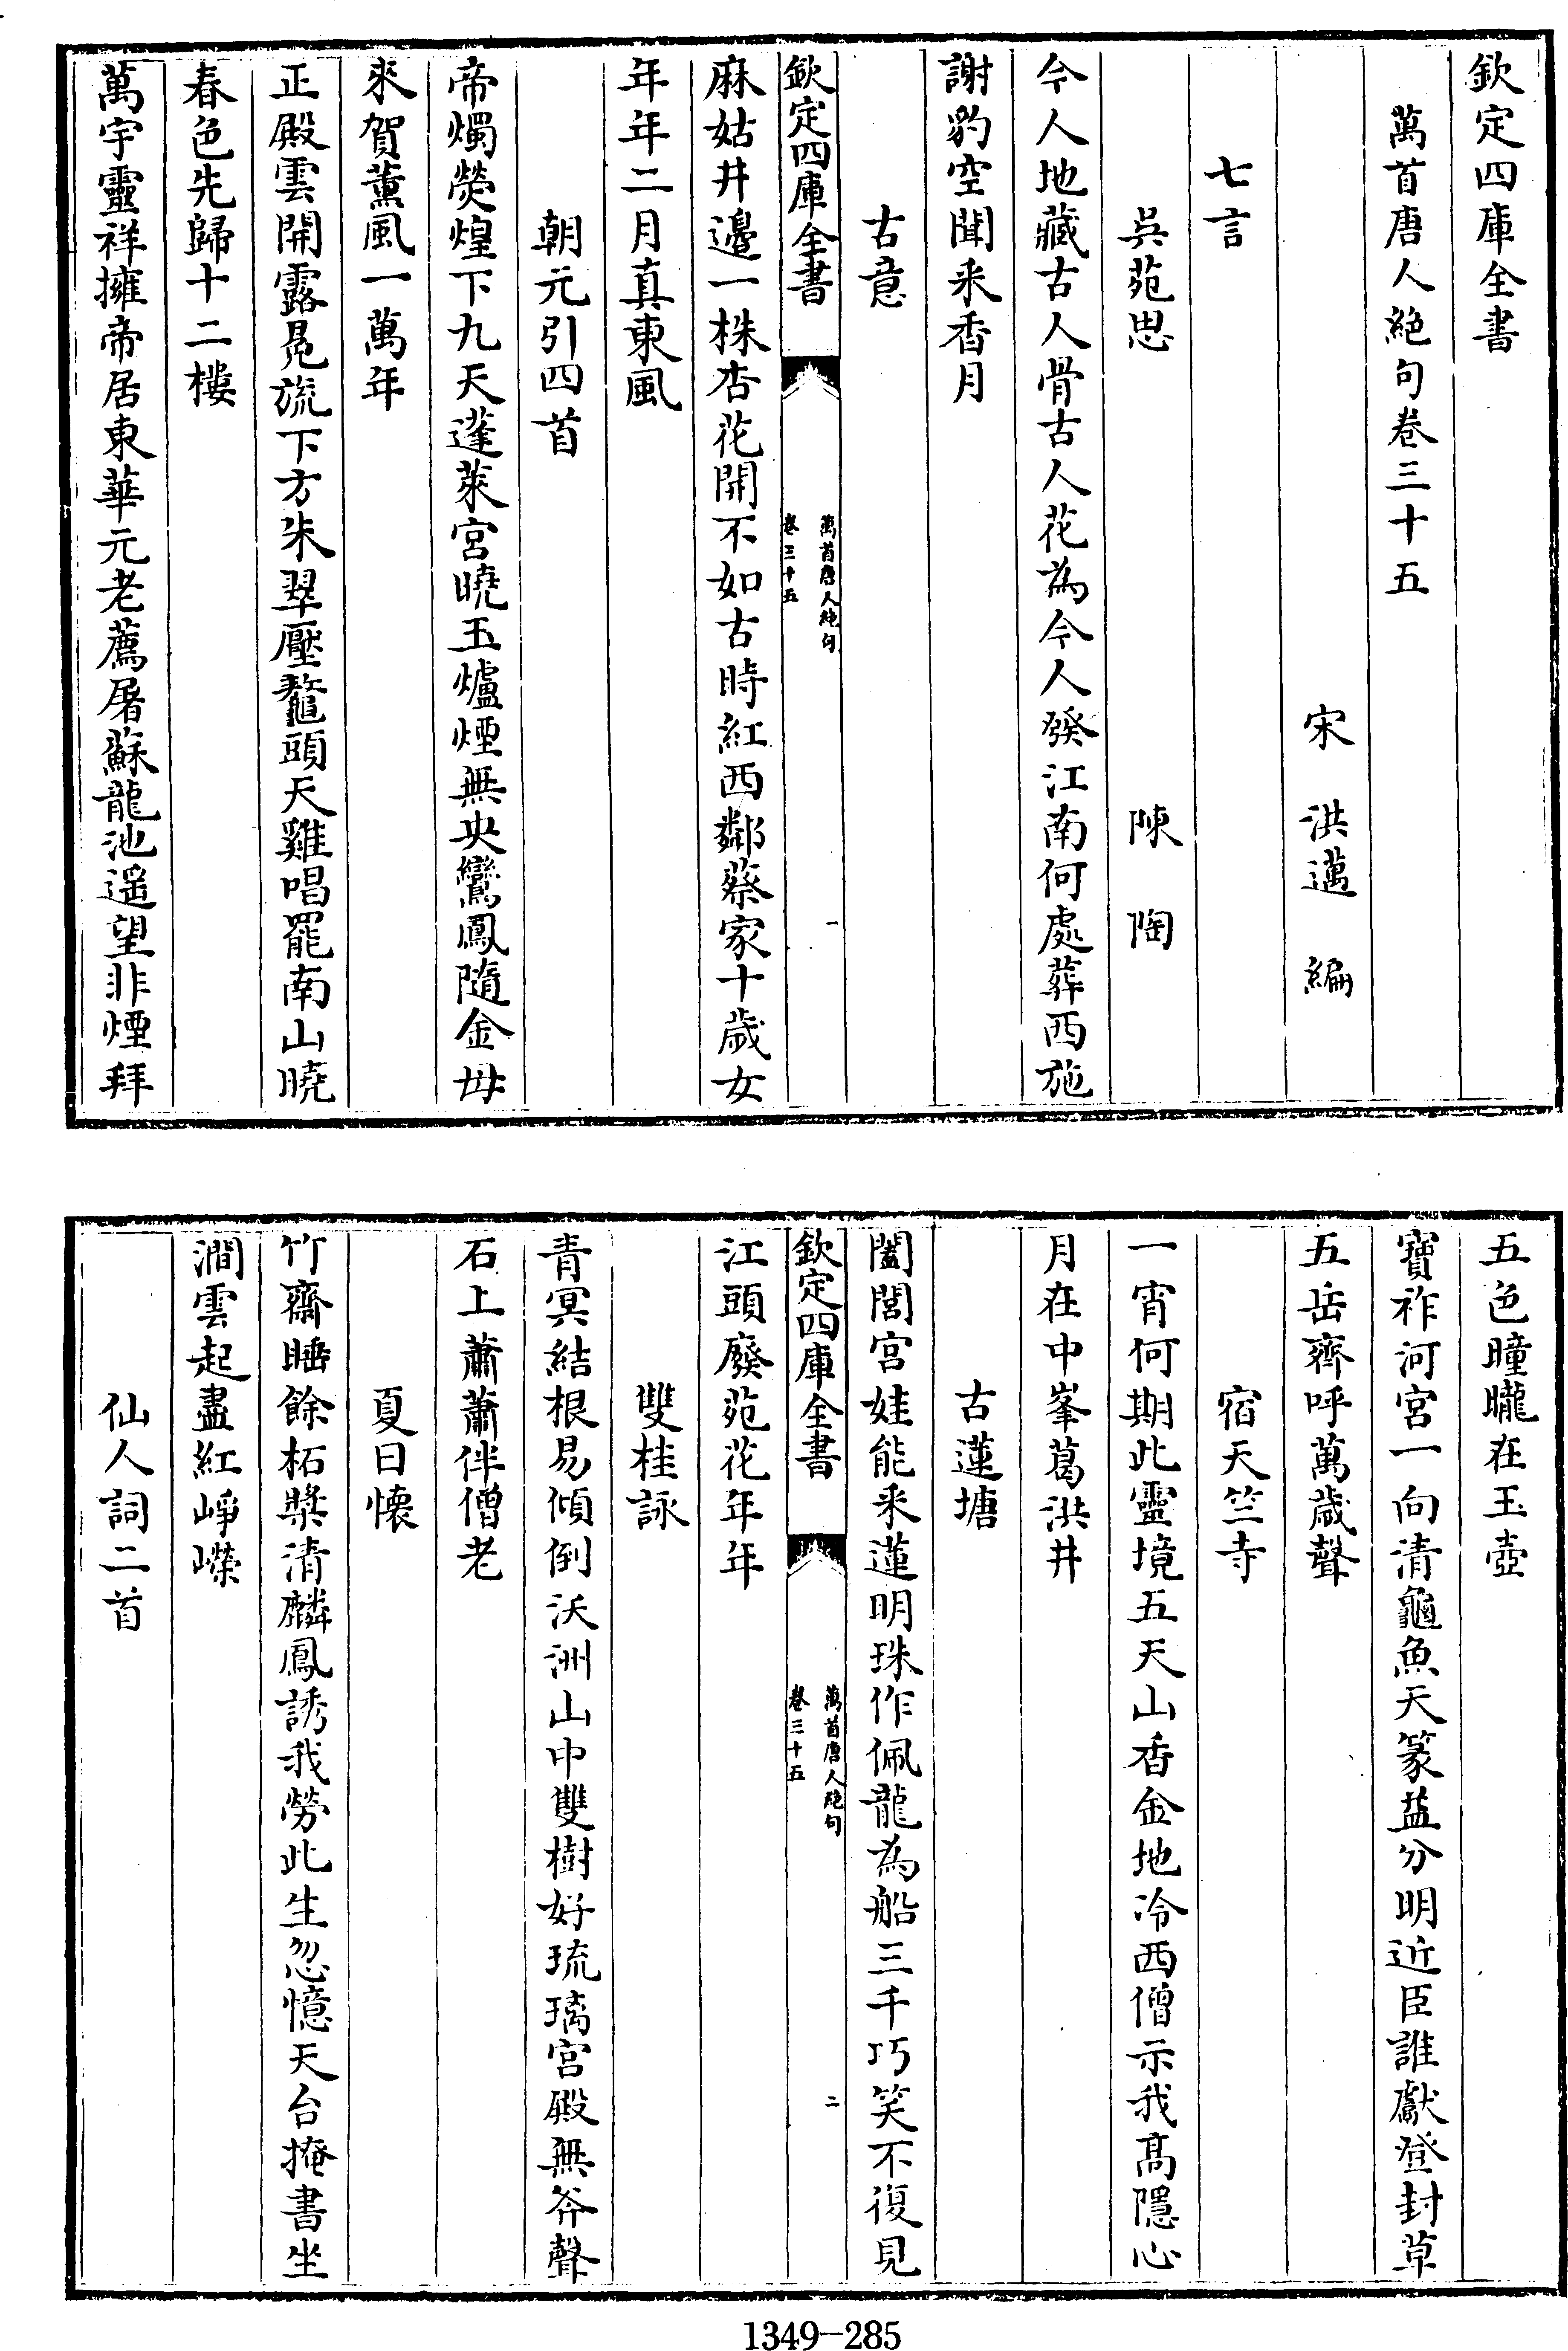 欽定四庫全書
萬首唐人絶句卷三十五
宋 洪邁 編
七言
吳苑思 陳陶
今人地藏古人骨古人花為今人發江南何處葬西施
謝豹空聞采香月
古意
欽定四庫全書
萬首唐人絶句
卷三十五
一
麻姑井邊一株杏花開不如古時紅西鄰蔡家十歲女
年年二月真東風
朝元引四首
帝燭熒煌下九天蓬萊宮曉玉爐煙無央鸞鳳隨金母
來賀薰風一萬年
正殿雲開露冕旒下方朱翠壓鼇頭天雞唱罷南山曉
春色先歸十二樓
萬宇靈祥擁帝居東華元老薦屠蘇龍池遥望非煙拜
五色曈曨在玉壺
寶祚河宮一向清龜魚天篆益分明近臣誰獻登封草
五岳齊呼萬歲聲
宿天竺寺
一宵何期此靈境五天山香金地冷西僧示我高隱心
月在中峯葛洪井
古蓮塘
闔閭宮娃能采蓮明珠作佩龍為船三千巧笑不復見
欽定四庫全書
萬首唐人絶句
卷三十五
二
江頭廢苑花年年
雙桂詠
青冥結根易傾倒沃洲山中雙樹好琉璃宮殿無斧聲
石上蕭蕭伴僧老
夏日懷
竹齋睡餘柘漿清麟鳳誘我勞此生忽憶天台掩書坐
澗雲起盡紅崢嶸
仙人詞二首
1349—285